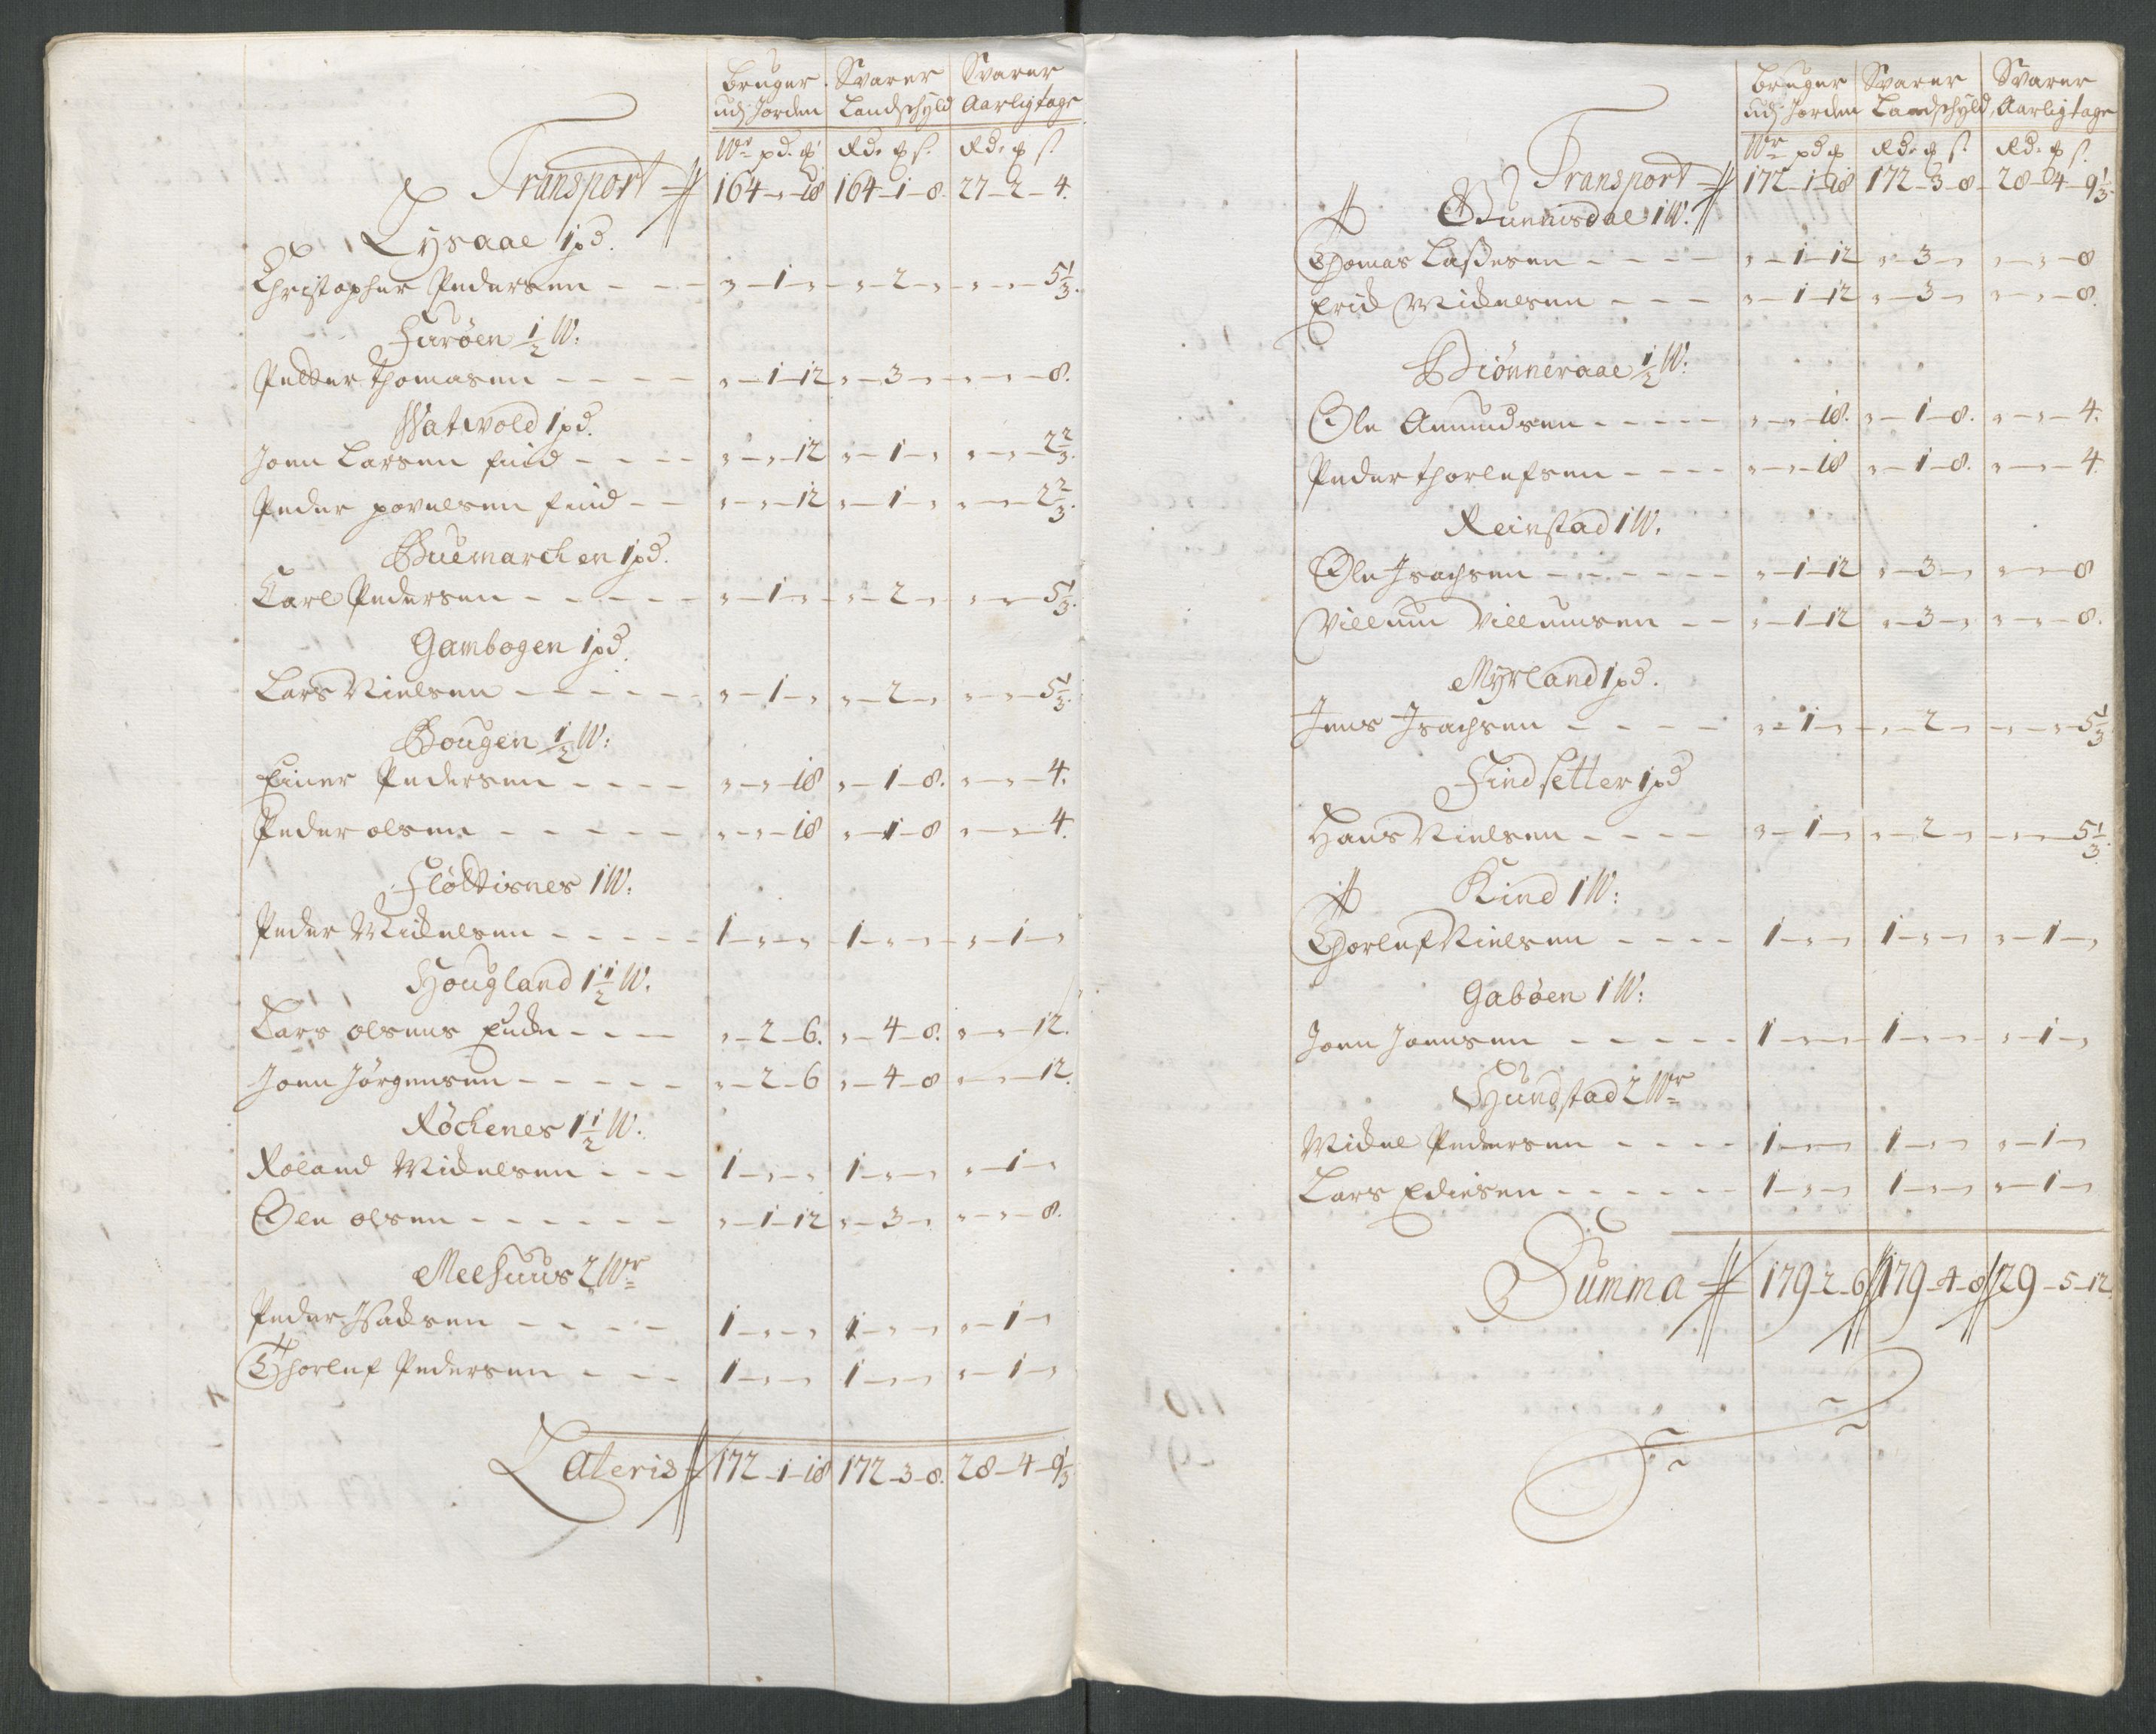 Bruger Svarer Svarer
udj Jorden Landschyld Aarlig tage
Wr pd. ₰ Rd. ₰ s. Rd. ₰ s.
Transport 164 - „ - 18 164 - 1 - 8. 27 - 2 - 4.
Lysaae 1 pd.
Christopher Pedersen - - - „ - 1 - „ „ - 2 - „ „ - „ - 5 1/3.
Furøen 1/2 W:
Petter Thomasen - - - - „ - 1 - 12 „ - 3 - „ „ - „ - 8.
Watvold 1 pd.
Joen Larsen find - - - - „ - „ - 12 „ - 1 - „ „ - „ - 2 2/3.
Peder povelsen find - - „ - „ - 12 „ - 1 - „ „ - „ - 2 2/3.
Buemarchen 1 pd.
Carl Pedersen - - - - - „ - 1 - „ „ - 2 - „ „ - „ - 5 1/3.
Gambogen 1 pd.
Lars Nielsen - - - - - „ - 1 - „ „ - 2 - „ „ - „ - 5 1/3.
Bougen 1/2 W:
Einer Pedersen - - - - „ - „ - 18 „ - 1 - 8. „ - „ - 4.
Peder olsen - - - - - „ - „ - 18 „ - 1 - 8 „ - „ - 4.
Fløttisnes 1 W:
Peder Mickelsen - - - - - 1 - „ - „ 1 - „ - „ „ - 1 - „
Hougland 1 1/2 W.
Lars olsens Encke - - - - „ - 2 - 6. „ - 4 - 8. „ - „ - 12.
Joen Jørgensen - - - - - „ - 2 - 6 „ - 4 - 8 „ - „ - 12.
Røckenes 1 1/2 W:
Roland Mickelsen - - - 1 - „ - „ 1 - „ - „ „ - 1 - „
Ole olsen - - - - - - „ - 1 - 12 „ - 3 - „ „ - „ - 8.
Meehuus 2 Wr
Peder Isacksen - - - - 1 - „ - „ 1 - „ - „ „ - 1 - „
Thorlef Pedersen - - - 1 - „ - „ 1 - „ - „ „ - 1 - „
Lateris 172 - 1 - 18 172 - 3 - 8. 28 - 4 - 9 1/3
Bruger Svarer Svarer
udj Jorden Landschyld Aarlig tage
Wr pd ₰ Rd. ₰ s. Rd. ₰ s.
Transport 172 - 1 - 18 172 - 3 - 8 28 - 4 - 9 1/3.
Gunnisdal 1 W:
Thomas Lassesen - - - - „ - 1 - 12 „ - 3 - „ „ - „ - 8
Erick Mickelsen - - - „ - 1 - 12 „ - 3 - „ „ - „ - 8.
Biønneraae 1/2 W:
Ole Amundsen - - - - - „ - „ - 18. „ - 1 - 8. „ - „ - 4.
Peder Thorlefsen - - - - „ - „ - 18 „ - 1 - 8. „ - „ - 4
Reinstad 1 W.
Ole Isachsen - - - - - - „ - 1 - 12 „ - 3 - „ „ - „ - 8
Villum Villumsen - - „ - 1 - 12 „ - 3 - „ „ - „ - 8.
Myrland 1 pd.
Jens Isachsen - - - - „ - 1 - „ „ - 2 - „ „ - „ - 5 1/3
Findsetter 1 pd
Hans Nielsen - - - - „ - 1 - „ „ - 2 - „ „ - „ - 5 1/3.
Kind 1 W:
Thorlef Nielsen - - - - 1 - „ - „ 1 - „ - „ „ - 1 - „
Gabøen 1 W:
Joen Joensen - - - - - 1 - „ - „ 1 - „ - „ „ - 1 - „
Hundstad 2 Wr
Mickel Pedersen - - - - 1 - „ - „ 1 - „ - „ „ - 1 - „
Lars Edisen - - - - - - 1 - „ - „ 1 - „ - „ „ - 1 - „
Summa 179 - 2 - 6 179 - 4 - 8 29 - 5 - 12.